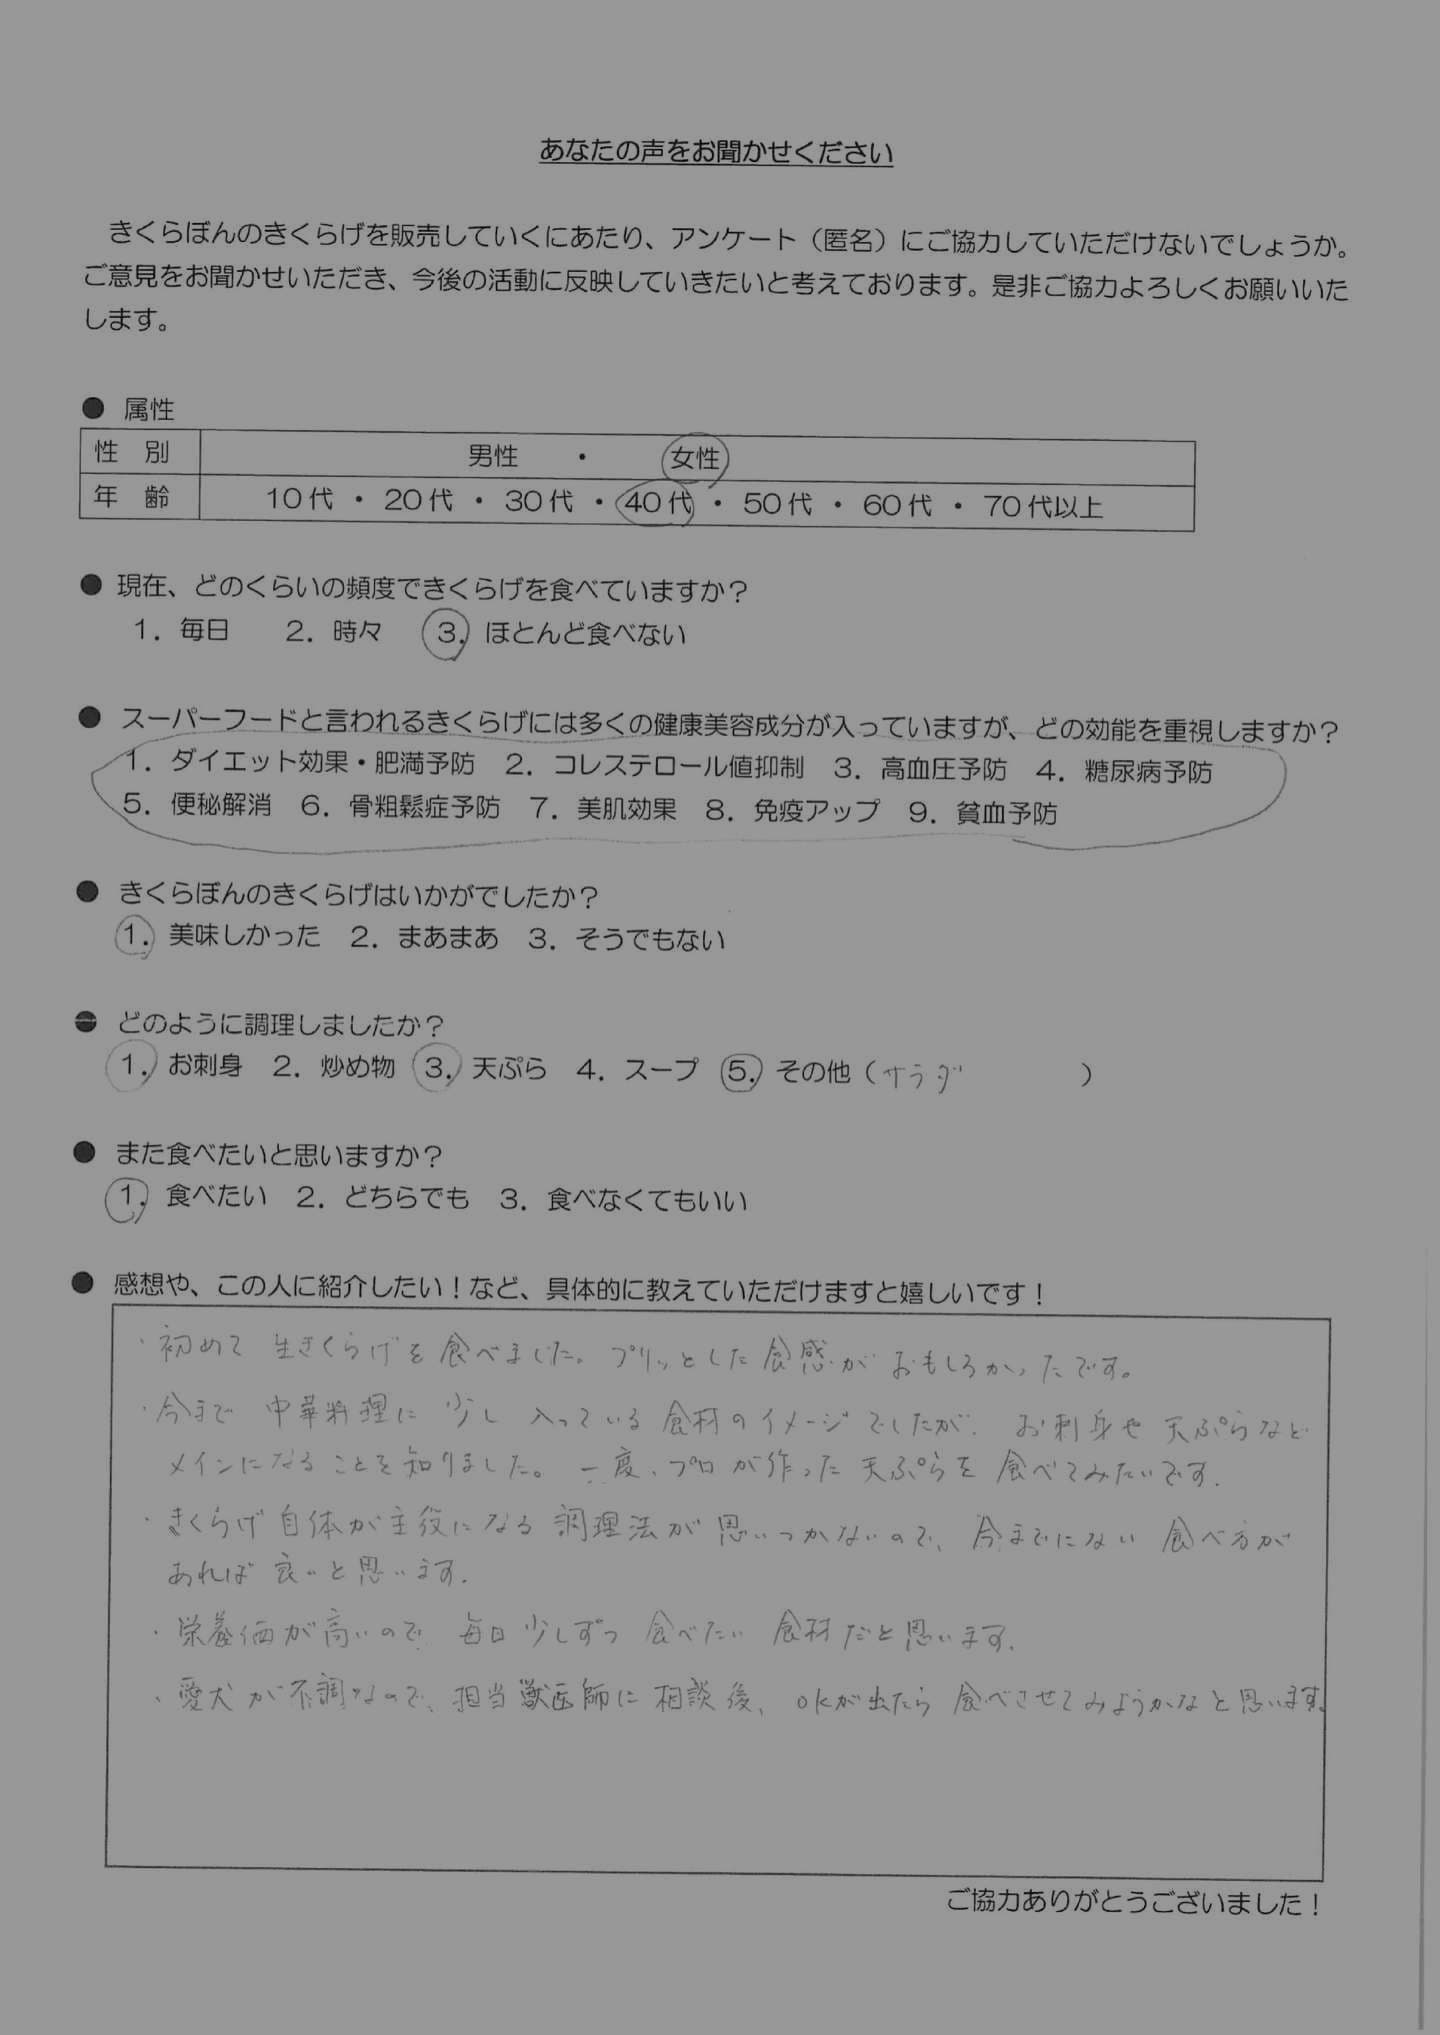 あなたの声をお聞かせください
きくらぼんのきくらげを販売していくにあたり、アンケート（匿名）にご協力していただけないでしょうか。
ご意見をお聞かせいただき、今後の活動に反映していきたいと考えております。是非ご協力よろしくお願いいた
します。
● 属性
性 別 男性 ・ 女性
年 齢 10代 ・ 20代 ・ 30代 ・ 40代 ・ 50代 ・ 60代 ・ 70代以上
● 現在、どのくらいの頻度できくらげを食べていますか？
1. 毎日 2. 時々 3. ほとんど食べない
● スーパーフードと言われるきくらげには多くの健康美容成分が入っていますが、どの効能を重視しますか？
1. ダイエット効果・肥満予防 2. コレステロール値抑制 3. 高血圧予防 4. 糖尿病予防
5. 便秘解消 6. 骨粗鬆症予防 7. 美肌効果 8. 免疫アップ 9. 貧血予防
● きくらぼんのきくらげはいかがでしたか？
1. 美味しかった 2. まあまあ 3. そうでもない
● どのように調理しましたか？
1. お刺身 2. 炒め物 3. 天ぷら 4. スープ 5. その他（サラダ ）
● また食べたいと思いますか？
1. 食べたい 2. どちらでも 3. 食べなくてもいい
● 感想や、この人に紹介したい！など、具体的に教えていただけますと嬉しいです！
・初めて 生きくらげを食べました。プリッとした食感がおもしろかったです。
・今まで 中華料理に 少し 入っている食材のイメージでしたが、お刺身や天ぷらなど
メインになることを知りました。一度、プロが作った天ぷらを食べてみたいです。
・きくらげ自体が主役になる調理法が思いつかないので、今までにない食べ方が
あれば良いと思います。
・栄養価が高いので、毎日少しずつ食べたい食材だと思います。
・愛犬が不調なので、担当獣医師に相談後、OKが出たら食べさせてみようかなと思います。
ご協力ありがとうございました！